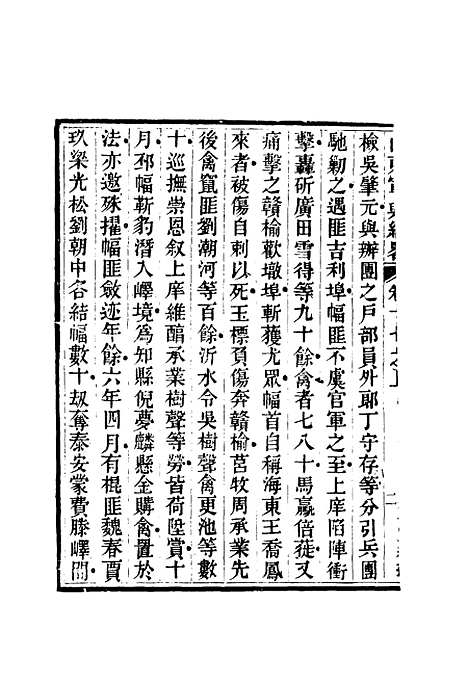 山東軍興紀畧 卷十七之上
檢吳肇元與辦團之戶部員外郎丁守存等分引兵團
馳勦之遇匪吉利埠幅匪不虞官軍之至上庠陷陣衝
擊轟斫廣田雪得等九十餘禽者七八十馬羸倍蓰又
痛擊之贛榆歡墩埠斬獲尤眾幅首自稱海東王喬鳳
來者被傷自刺以死玉標頂傷奔贛榆莒牧周承業先
後禽竄匪劉潮河等百餘沂水令吳樹聲禽更池等數
十巡撫崇恩叙上庠維醕承業樹聲等勞皆荷陞賞十
月邳幅靳豹潛入嶧境為知縣倪夢麟懸金購禽置於
法亦邀殊擢幅匪斂迹年餘六年四月有棍匪魏春賈
玖梁光松劉朝中各結幅數十刼奪泰安蒙費滕嶧間